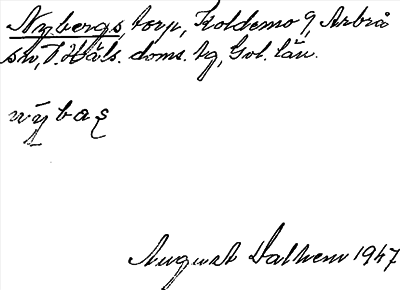 Nybergs, torp, Koldemo 9, Arbrå
sn, V. Häls. doms. tg, Gvl. län.
nȳbaṣ
August Dalhem 1947